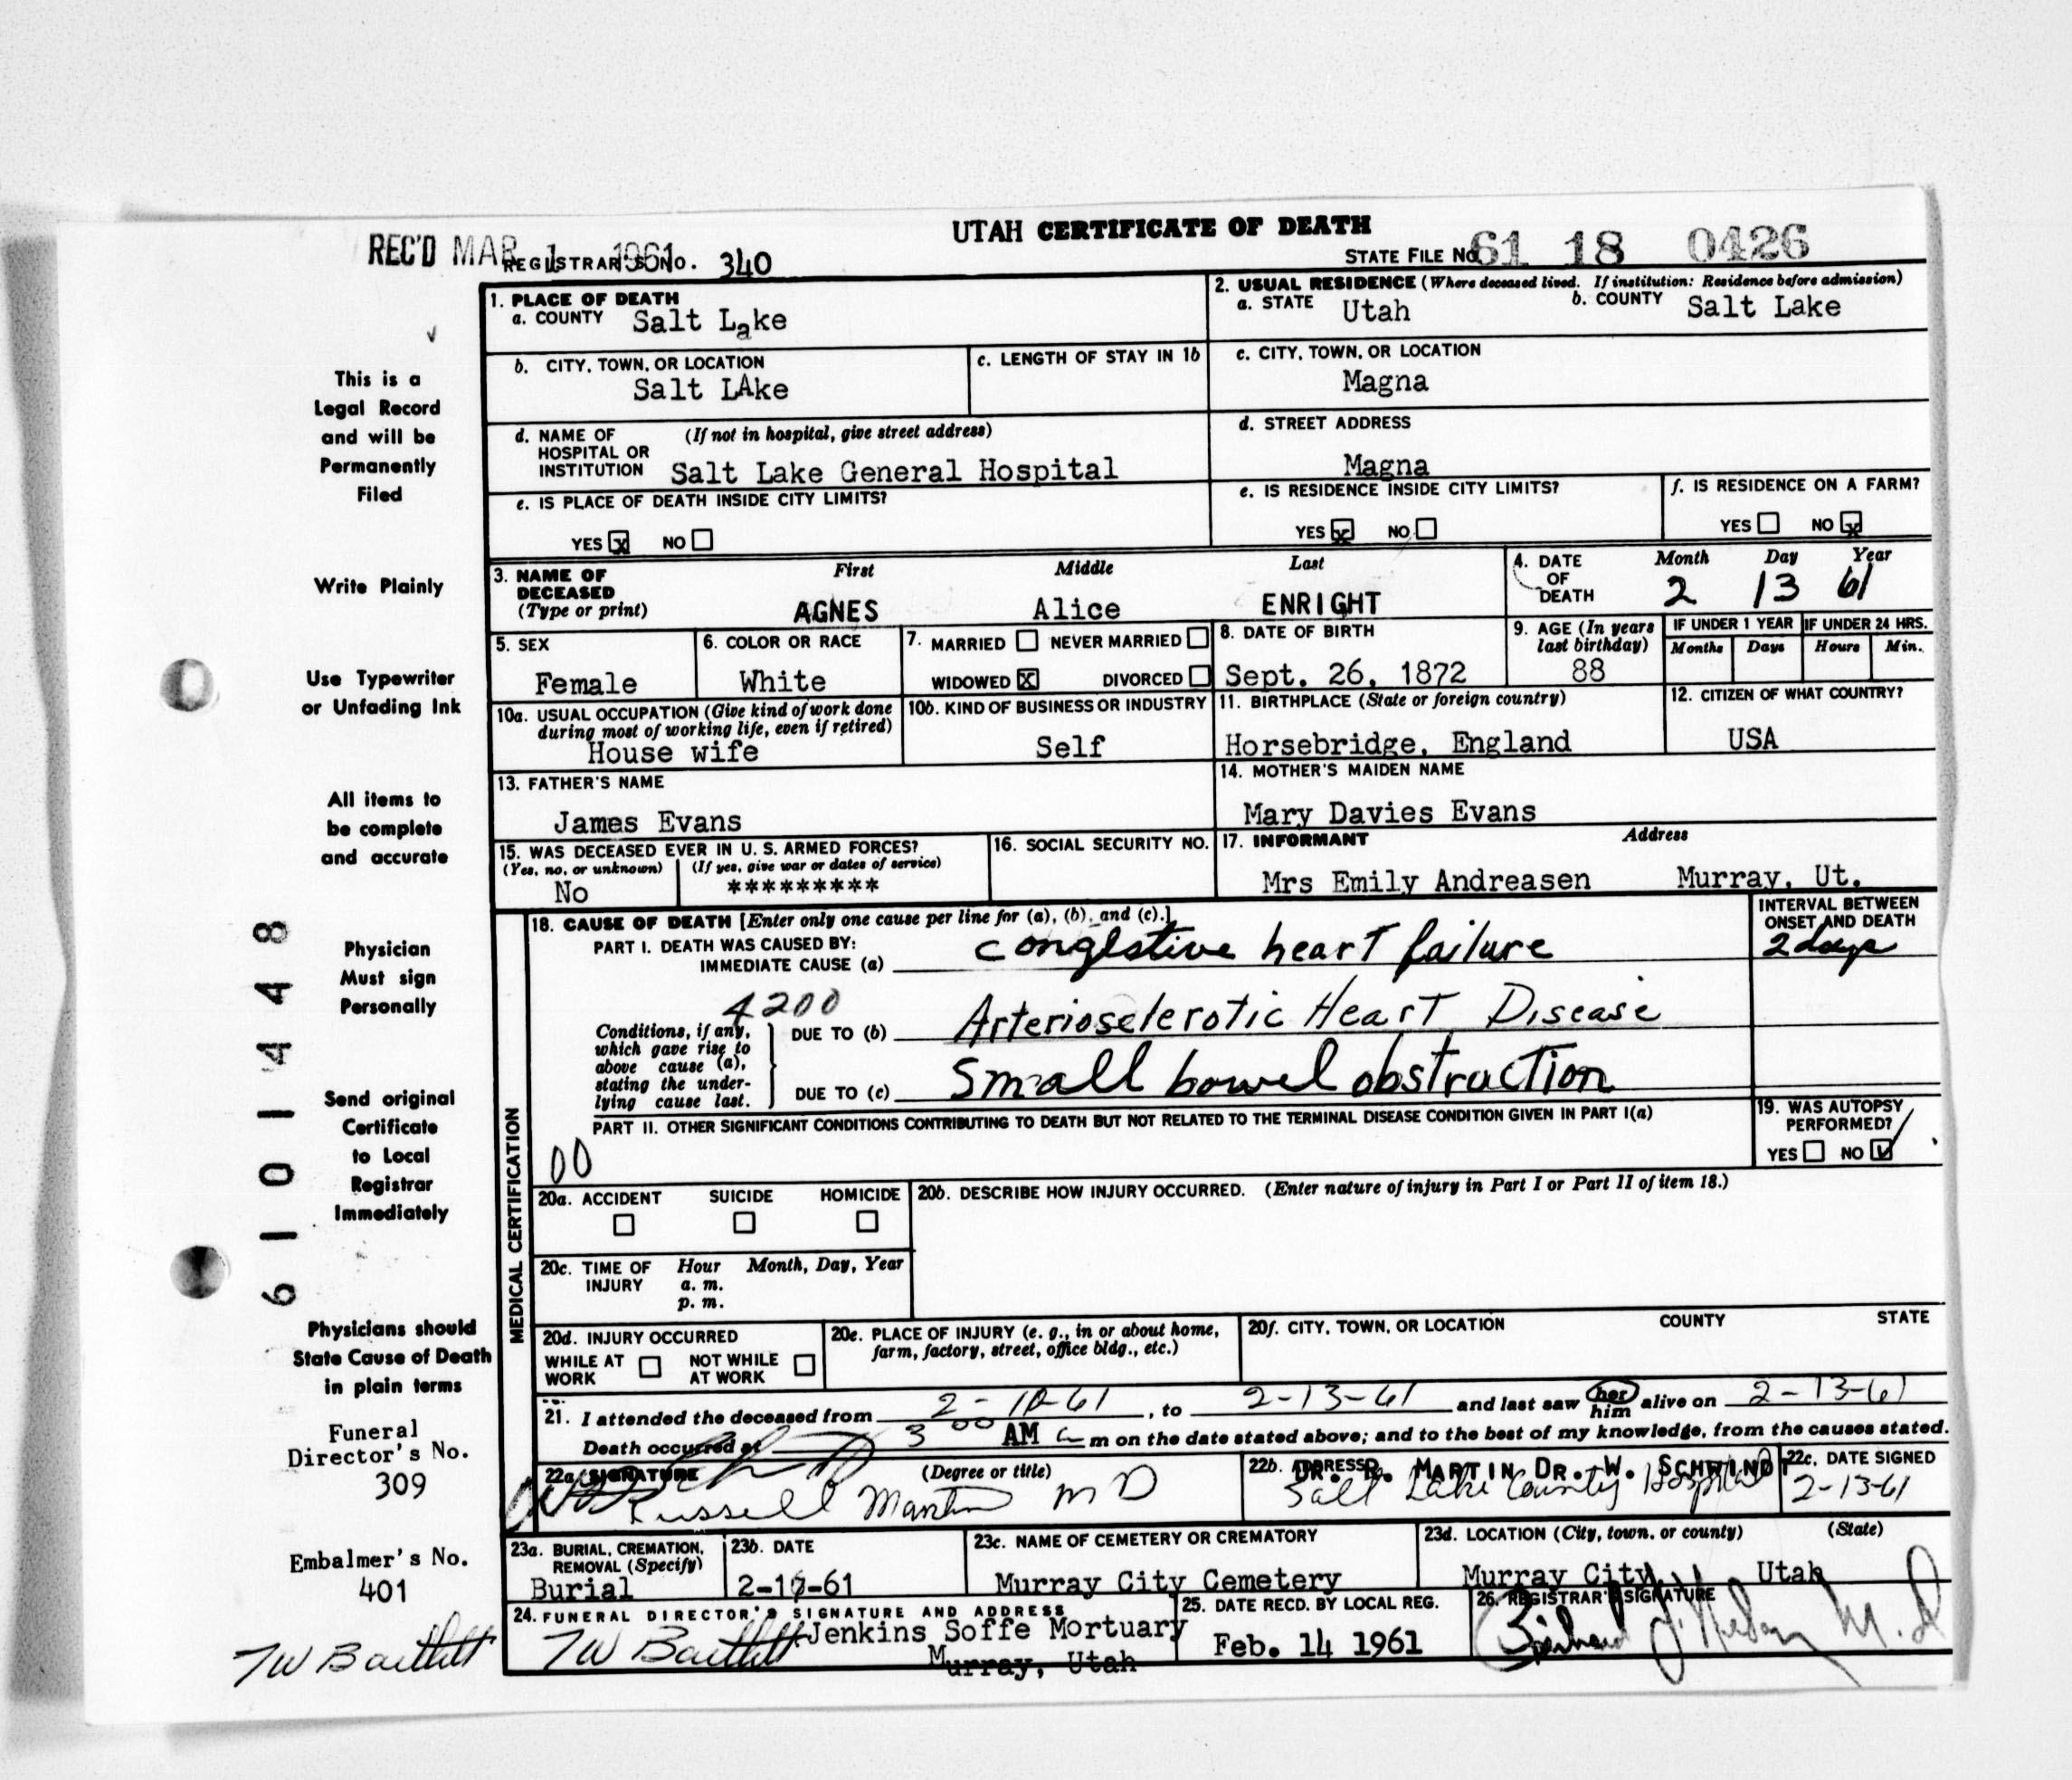 UTAH CERTIFICATE OF DEATH
REC'D MAR 1 1961 REGISTRAR'S NO. 340 STATE FILE NO. 61 18 0426
1. PLACE OF DEATH
a. COUNTY Salt Lake
2. USUAL RESIDENCE (Where deceased lived. If institution: Residence before admission)
a. STATE Utah b. COUNTY Salt Lake
b. CITY, TOWN, OR LOCATION
Salt LAke
c. LENGTH OF STAY IN 1b
c. CITY, TOWN, OR LOCATION
Magna
d. NAME OF HOSPITAL OR INSTITUTION (If not in hospital, give street address)
Salt Lake General Hospital
d. STREET ADDRESS
Magna
e. IS PLACE OF DEATH INSIDE CITY LIMITS?
YES x NO
e. IS RESIDENCE INSIDE CITY LIMITS?
YES x NO
f. IS RESIDENCE ON A FARM?
YES NO x
3. NAME OF DECEASED (Type or print)
First Middle Last
AGNES Alice ENRIGHT
4. DATE OF DEATH Month Day Year
2 13 61
5. SEX
Female
6. COLOR OR RACE
White
7. MARRIED NEVER MARRIED
WIDOWED X DIVORCED
8. DATE OF BIRTH
Sept. 26, 1872
9. AGE (In years last birthday)
88
IF UNDER 1 YEAR IF UNDER 24 HRS.
Months Days Hours Min.
10a. USUAL OCCUPATION (Give kind of work done during most of working life, even if retired)
House wife
10b. KIND OF BUSINESS OR INDUSTRY
Self
11. BIRTHPLACE (State or foreign country)
Horsebridge, England
12. CITIZEN OF WHAT COUNTRY?
USA
13. FATHER'S NAME
James Evans
14. MOTHER'S MAIDEN NAME
Mary Davies Evans
15. WAS DECEASED EVER IN U. S. ARMED FORCES?
(Yes, no, or unknown) (If yes, give war or dates of service)
No *********
16. SOCIAL SECURITY NO.
17. INFORMANT Address
Mrs Emily Andreasen Murray, Ut.
18. CAUSE OF DEATH [Enter only one cause per line for (a), (b), and (c).]
INTERVAL BETWEEN ONSET AND DEATH
PART I. DEATH WAS CAUSED BY:
IMMEDIATE CAUSE (a) congestive heart failure 2 days
4200
Conditions, if any, which gave rise to above cause (a), stating the underlying cause last.
DUE TO (b) Arterioselerotic Heart Disease
DUE TO (c) Small bowel obstruction
PART II. OTHER SIGNIFICANT CONDITIONS CONTRIBUTING TO DEATH BUT NOT RELATED TO THE TERMINAL DISEASE CONDITION GIVEN IN PART I(a)
00
19. WAS AUTOPSY PERFORMED?
YES NO
MEDICAL CERTIFICATION
20a. ACCIDENT SUICIDE HOMICIDE
20b. DESCRIBE HOW INJURY OCCURRED. (Enter nature of injury in Part I or Part II of item 18.)
20c. TIME OF INJURY Hour Month, Day, Year
a. m.
p. m.
20d. INJURY OCCURRED
WHILE AT WORK NOT WHILE AT WORK
20e. PLACE OF INJURY (e. g., in or about home, farm, factory, street, office bldg., etc.)
20f. CITY, TOWN, OR LOCATION COUNTY STATE
21. I attended the deceased from 2-10-61, to 2-13-61 and last saw her him alive on 2-13-61
Death occurred at 3 00 AM a m on the date stated above; and to the best of my knowledge, from the causes stated.
22a. SIGNATURE (Degree or title)
Russell Martin MD
22b. ADDRESS
DR. R. MARTIN DR. W. SCHWINDT
Salt Lake County Hospital
22c. DATE SIGNED
2-13-61
23a. BURIAL, CREMATION, REMOVAL (Specify)
Burial
23b. DATE
2-16-61
23c. NAME OF CEMETERY OR CREMATORY
Murray City Cemetery
23d. LOCATION (City, town, or county) (State)
Murray City, Utah
24. FUNERAL DIRECTOR'S SIGNATURE AND ADDRESS
TW Bartlett Jenkins Soffe Mortuary
Murray, Utah
25. DATE RECD. BY LOCAL REG.
Feb. 14 1961
26. REGISTRAR'S SIGNATURE
M. D
This is a
Legal Record
and will be
Permanently
Filed
Write Plainly
Use Typewriter
or Unfading Ink
All items to
be complete
and accurate
Physician
Must sign
Personally
Send original
Certificate
to Local
Registrar
Immediately
Physicians should
State Cause of Death
in plain terms
Funeral
Director's No.
309
Embalmer's No.
401
TW Bartlett
6101448